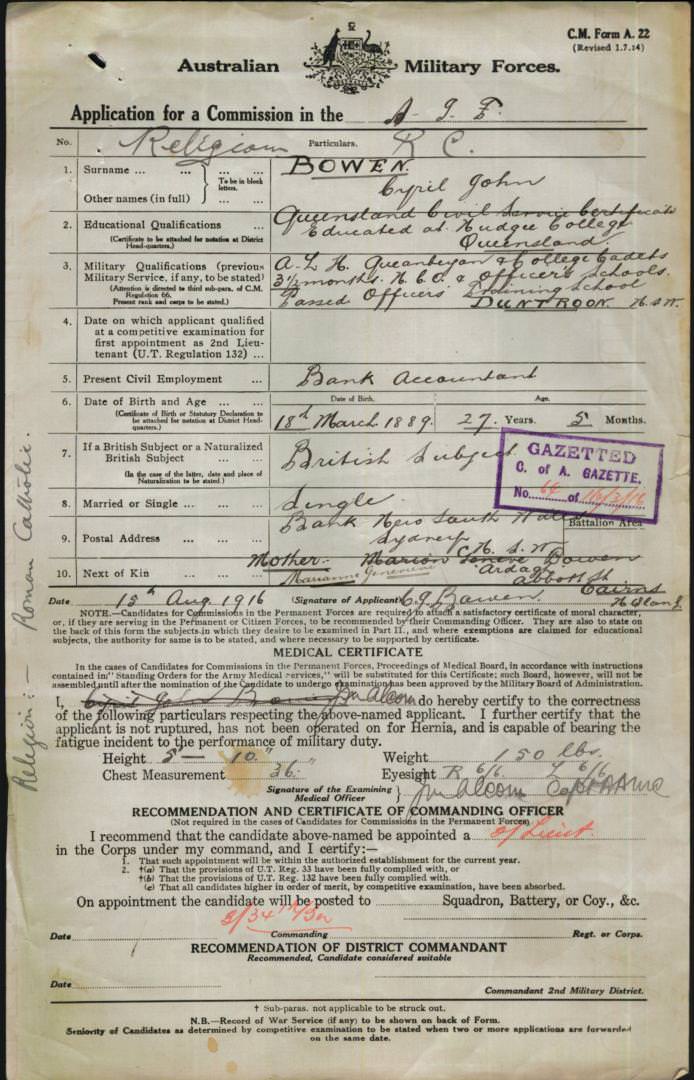 C.M. Form A. 22
(Revised 1.7.14)
Australian Military Forces.
Application for a Commission in the A. I. F.
No. Religion Particulars. R C.
1. Surname ... ... ... ... BOWEN.
To be in block letters.
Other names (in full) ... ... Cyril John
2. Educational Qualifications ... Queensland Civil Service Certificate
Educated at Nudgee College
(Certificate to be attached for notation at District Head-quarters.) Queensland
3. Military Qualifications (previous Military Service, if any, to be stated) A.L.H. Queanbeyan & College Cadets
3½ months. N.C.O. & Officers Schools.
(Attention is directed to third sub-para. of C.M. Regulation 66. Present rank and corps to be stated.) Passed Officers Training School
DUNTROON. N.S.W.
4. Date on which applicant qualified
at a competitive examination for
first appointment as 2nd Lieu-
tenant (U.T. Regulation 132) ...
5. Present Civil Employment ... Bank Accountant
6. Date of Birth and Age ... ... Date of Birth. Age.
(Certificate of Birth or Statutory Declaration to be attached for notation at District Head-quarters.) 18th March 1889. 27 Years. 5 Months.
7. If a British Subject or a Naturalized
British Subject ... ... ... British Subject
(In the case of the latter, date and place of Naturalization to be stated.)
GAZETTED
C. of A. GAZETTE.
No. 64 of
8. Married or Single ... ... ... Single.
9. Postal Address ... ... ... Bank New South Wales Battalion Area
Sydney N.S.W
10. Next of Kin ... ... Mother. Marion Geneve Bowen
Marianne Genevieve Ardagh
Abbott St
Cairns
N. Qland
Date 15th Aug. 1916 (Signature of Applicant) C.J. Bowen.
NOTE.—Candidates for Commissions in the Permanent Forces are required to attach a satisfactory certificate of moral character,
or, if they are serving in the Permanent or Citizen Forces, to be recommended by their Commanding Officer. They are also to state on
the back of this form the subjects in which they desire to be examined in Part II., and where exemptions are claimed for educational
subjects, the authority for same is to be stated, and where necessary to be supported by certificate.
MEDICAL CERTIFICATE
In the cases of Candidates for Commissions in the Permanent Forces, Proceedings of Medical Board, in accordance with instructions
contained in "Standing Orders for the Army Medical Services," will be substituted for this Certificate; such Board, however, will not be
assembled until after the nomination of the Candidate to undergo examination has been approved by the Military Board of Administration.
I, Cyril John Bowen Jm Alcorn do hereby certify to the correctness
of the following particulars respecting the above-named applicant. I further certify that the
applicant is not ruptured, has not been operated on for Hernia, and is capable of bearing the
fatigue incident to the performance of military duty.
Height 5 - 10." Weight 150 lbs.
Chest Measurement 36." Eyesight R 6/6 L 6/6
Signature of the Examining Medical Officer Jm Alcorn Capt AAMC
RECOMMENDATION AND CERTIFICATE OF COMMANDING OFFICER
(Not required in the cases of Candidates for Commissions in the Permanent Forces)
I recommend that the candidate above-named be appointed a 2/Lieut.
in the Corps under my command, and I certify:—
1. That such appointment will be within the authorized establishment for the current year.
2. †(a) That the provisions of U.T. Reg. 33 have been fully complied with, or
†(b) That the provisions of U.T. Reg. 132 have been fully complied with.
(c) That all candidates higher in order of merit, by competitive examination, have been absorbed.
On appointment the candidate will be posted to Squadron, Battery, or Coy., &c.
8/34th Bn
Date Commanding Regt. or Corps.
RECOMMENDATION OF DISTRICT COMMANDANT
Recommended, Candidate considered suitable
Date
Commandant 2nd Military District.
† Sub-paras. not applicable to be struck out.
N.B.—Record of War Service (if any) to be shown on back of Form.
Seniority of Candidates as determined by competitive examination to be stated when two or more applications are forwarded
on the same date.
Religion:— Roman Catholic.